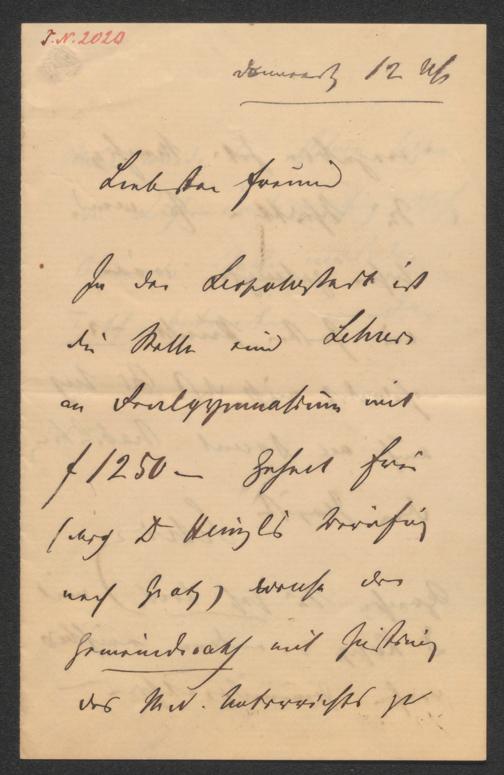 I.N. 2020
12 Uhr
Liebster Freund
In der Leopoldstadt ist
die Stelle eines Lehrers
am Realgymnasium mit
f 1250 — Gehalt frei
(durch Dr Heinzls Berufung
nach Graz) welche der
Gemeinderath mit
des M. d. Unterrichts zu